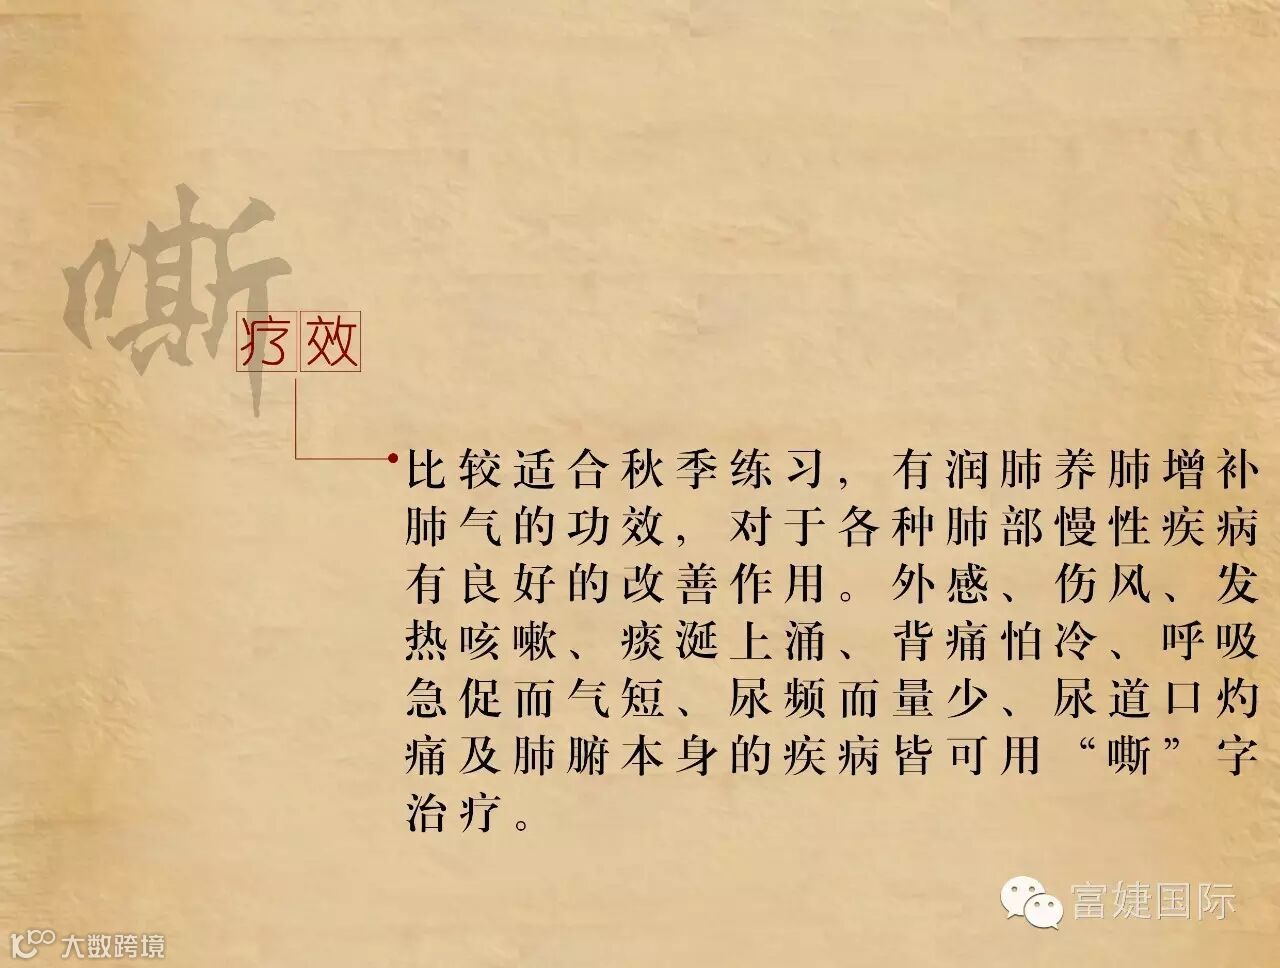 嘶
疗效
比较适合秋季练习，有润肺养肺增补
肺气的功效，对于各种肺部慢性疾病
有良好的改善作用。外感、伤风、发
热咳嗽、痰涎上涌、背痛怕冷、呼吸
急促而气短、尿频而量少、尿道口灼
痛及肺腑本身的疾病皆可用“嘶”字
治疗。
富婕国际
大数跨境